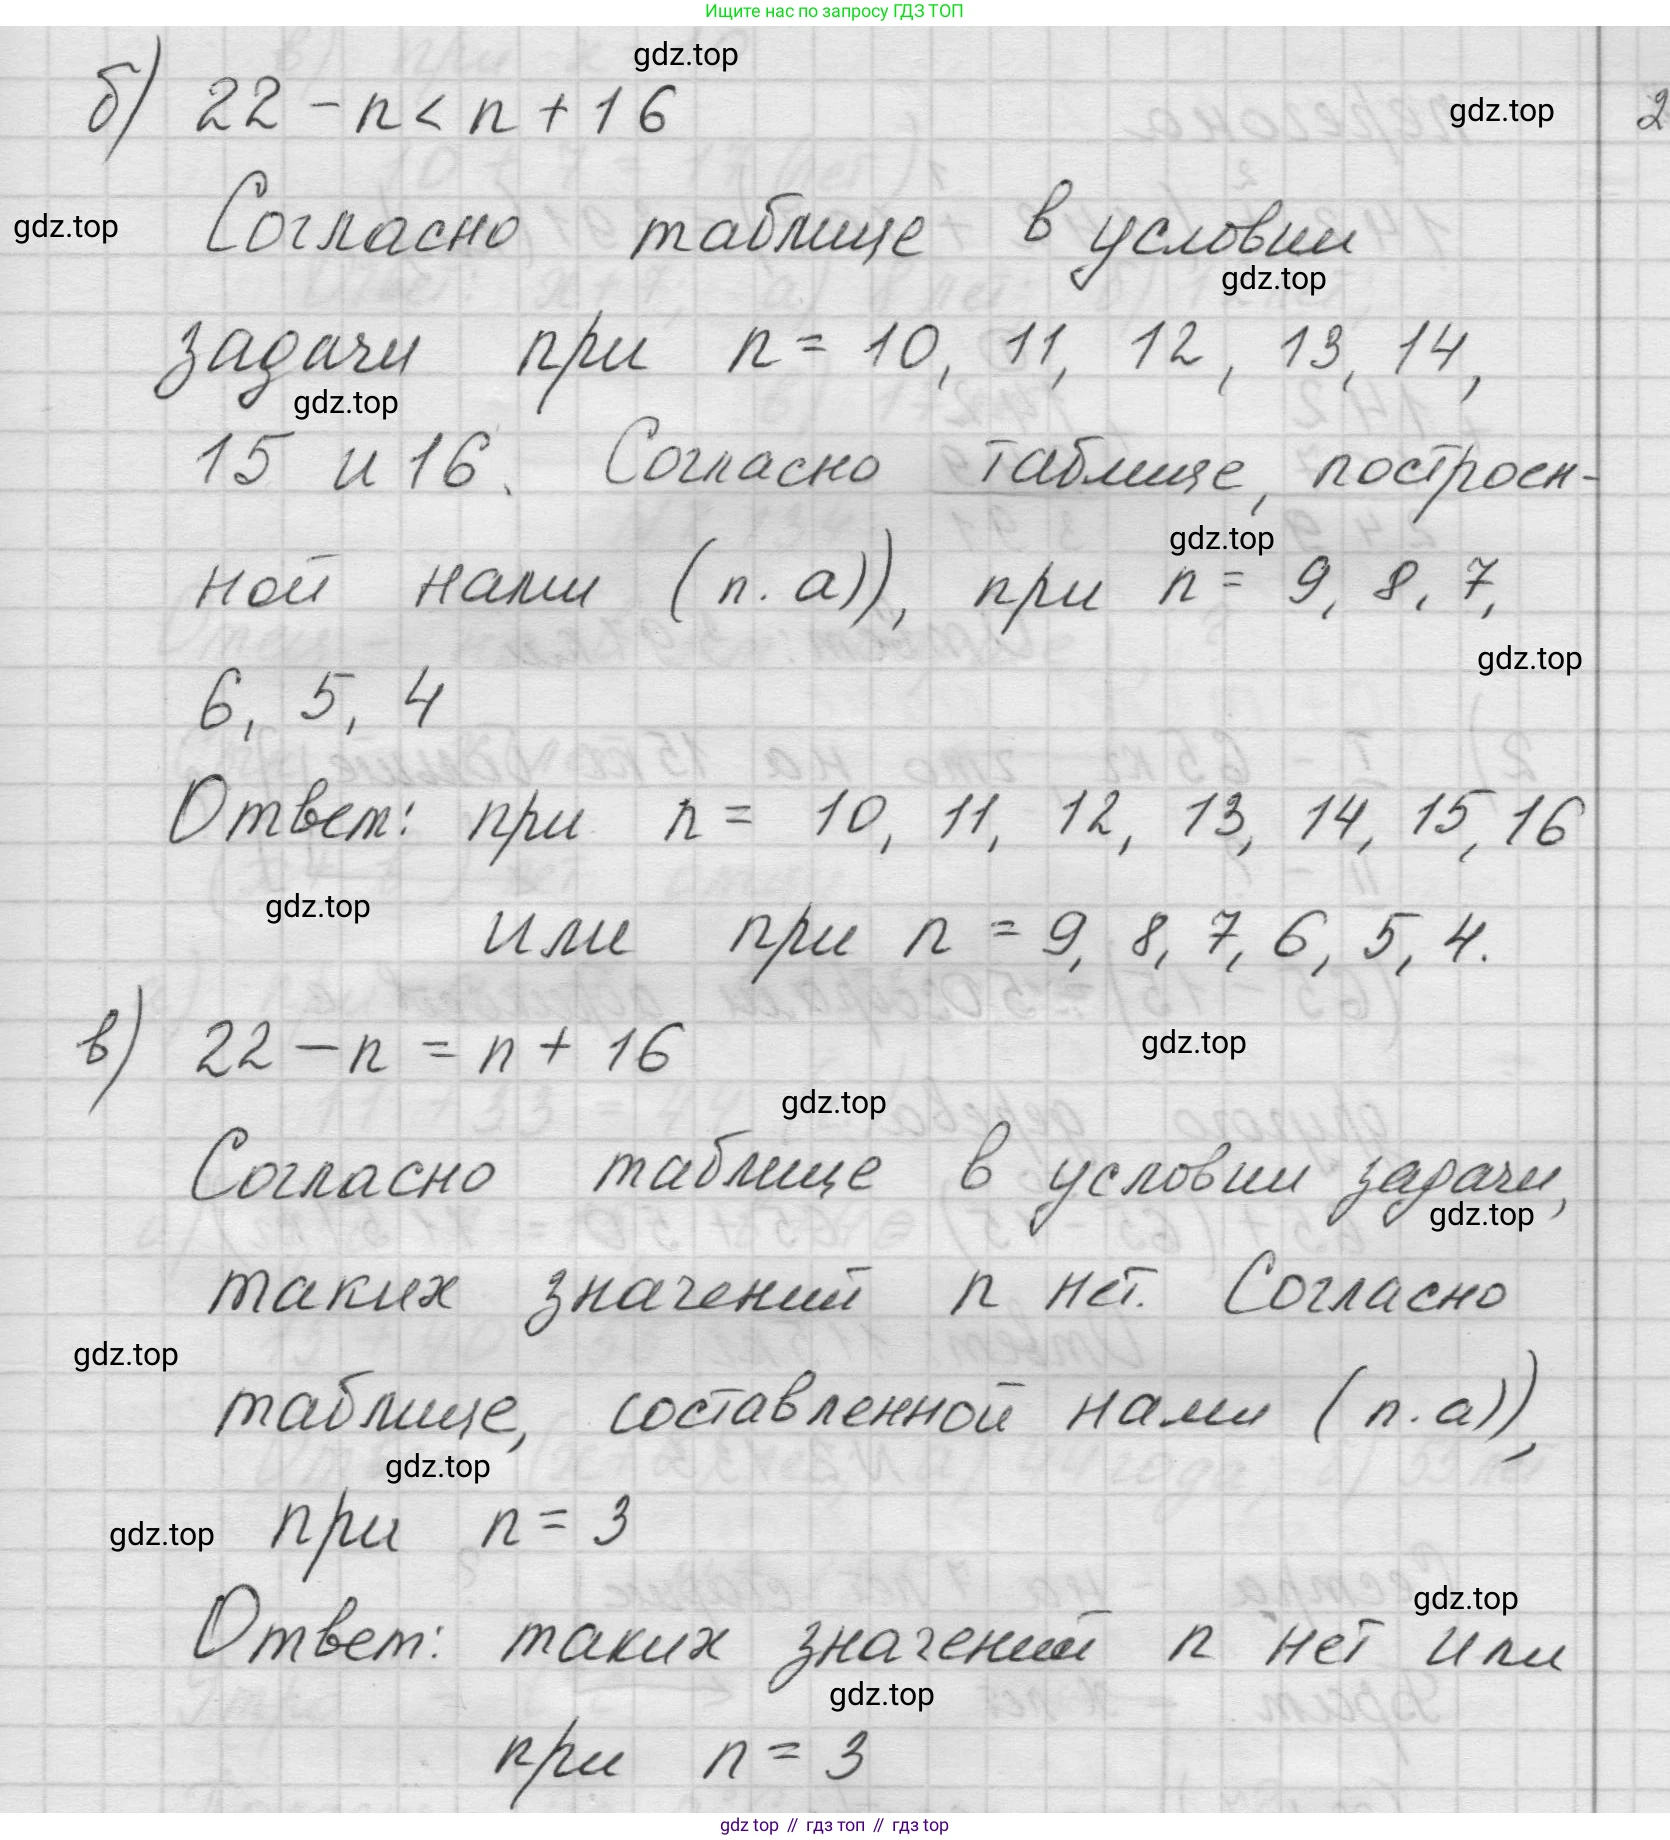 Ищите нас по запросу ГДЗ ТОП
gdz.top
б) 22 - n < n + 16
gdz.top
2
Согласно таблице в условии
gdz.top
gdz.top
задачи при n = 10, 11, 12, 13, 14,
gdz.top
15 и 16. Согласно таблице, построен-
gdz.top
ной нами (п. а)), при n = 9, 8, 7,
gdz.top
6, 5, 4
Ответ: при n = 10, 11, 12, 13, 14, 15, 16
gdz.top
или при n = 9, 8, 7, 6, 5, 4.
в) 22 - n = n + 16
gdz.top
gdz.top
Согласно таблице в условии задачи,
gdz.top
таких значений n нет. Согласно
gdz.top
таблице, составленной нами (п. а)),
gdz.top
gdz.top
при n = 3
gdz.top
Ответ: таких значений n нет или
gdz.top
при n = 3
gdz top // гдз топ // гдз top